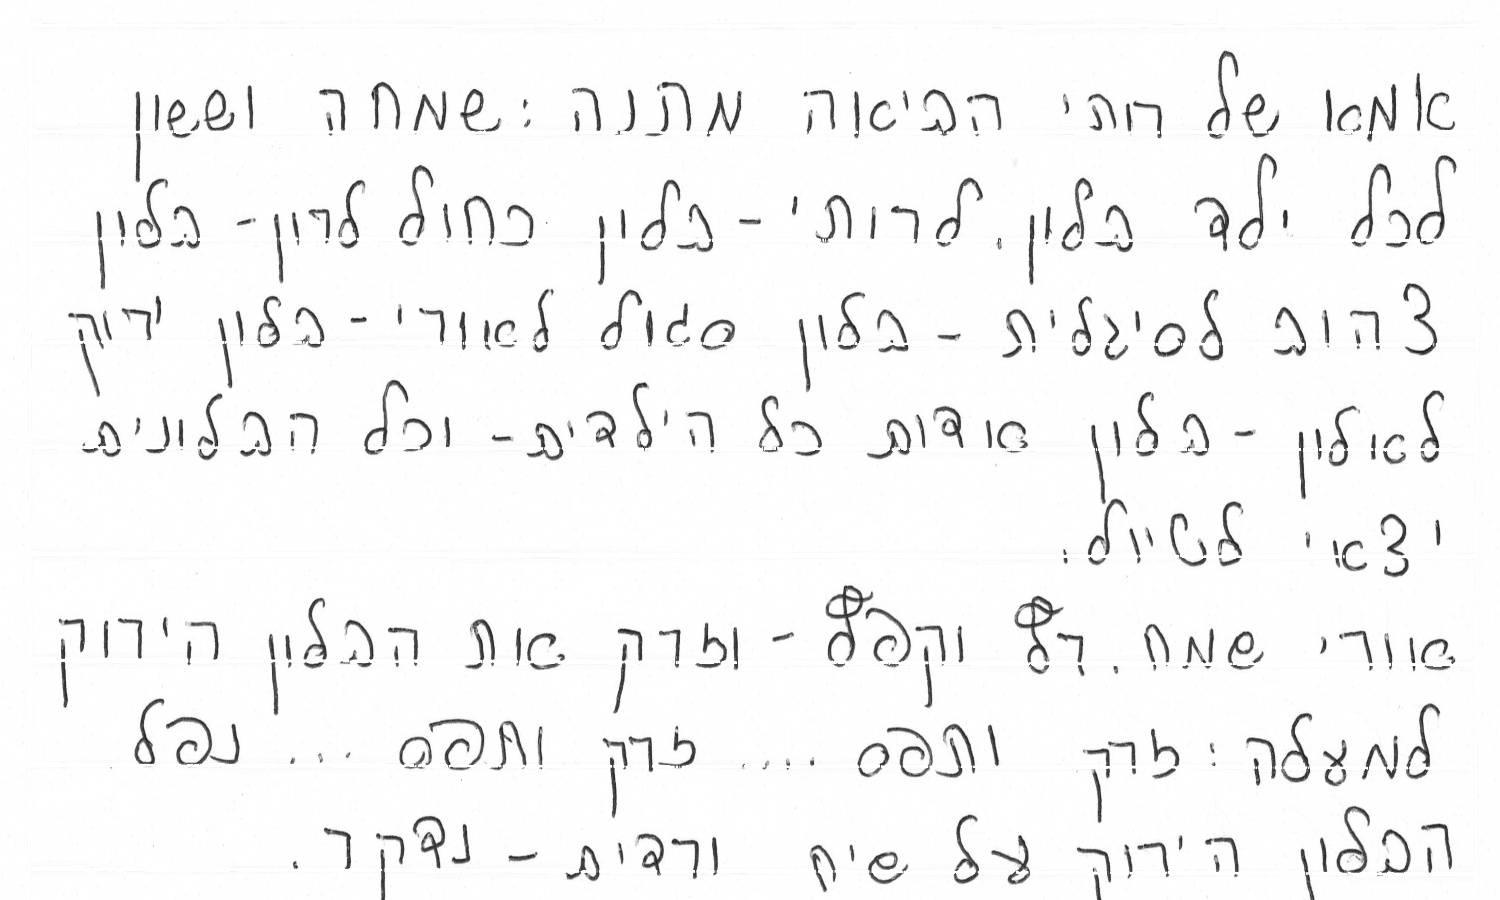 אמא של רותי הביאה מתנה: שמחה וששון
לכל ילד בלון. לרותי - בלון כחול לרון - בלון
צהוב לסיגלית - בלון סגול לאורי - בלון ירוק
לאלון - בלון אדום כל הילדים - וכל הבלונים
יצאו לטיול.
אורי שמח. רץ וקפץ - וזרק את הבלון הירוק
למעלה: זרק ותפס .... זרק ותפס ... נפל
הבלון הירוק על שיח ורדים - נדקר.